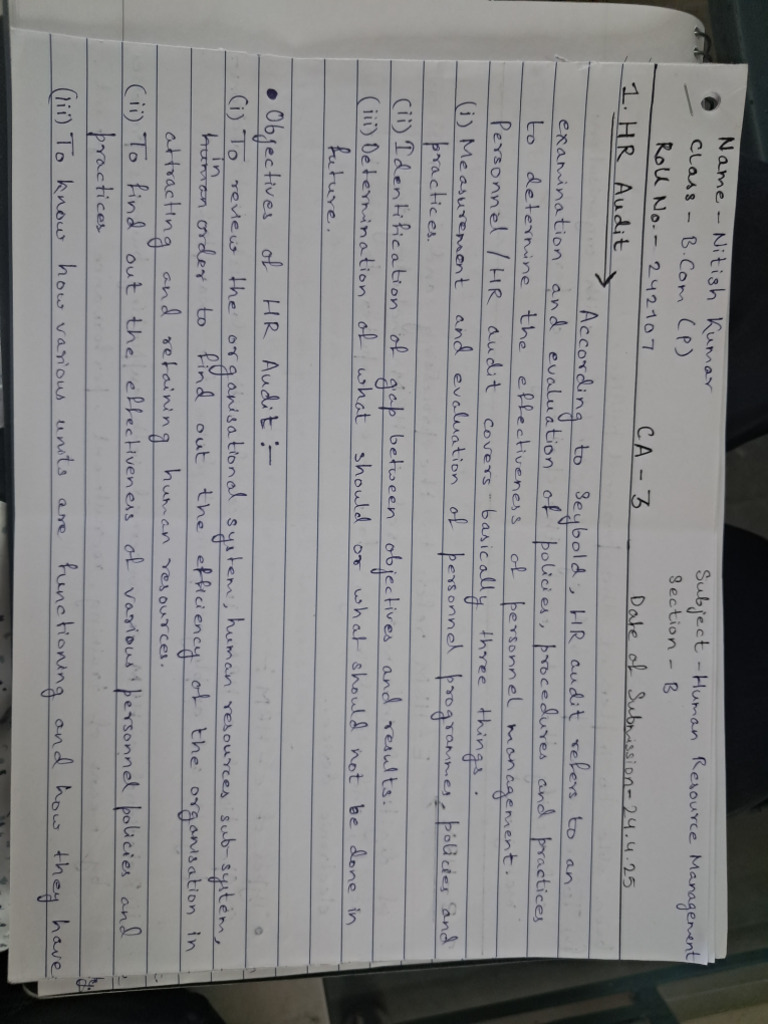 Name - Nitish Kumar Subject - Human Resource Management
Class - B.Com (P) Section - B
Roll No. - 242107 CA - 3 Date of Submission - 24.4.25
1. HR Audit →
According to Seybold, HR audit refers to an
examination and evaluation of policies, procedures and practices
to determine the effectiveness of personnel management.
Personnel / HR audit covers basically three things.
(i) Measurement and evaluation of personnel programmes, policies and
practices.
(ii) Identification of gap between objectives and results.
(iii) Determination of what should or what should not be done in
future.
• Objectives of HR Audit :-
(i) To review the organisational system, human resources sub-system,
in
human order to find out the efficiency of the organisation in
attracting and retaining human resources.
(ii) To find out the effectiveness of various personnel policies and
practices
(iii) To know how various units are functioning and how they have